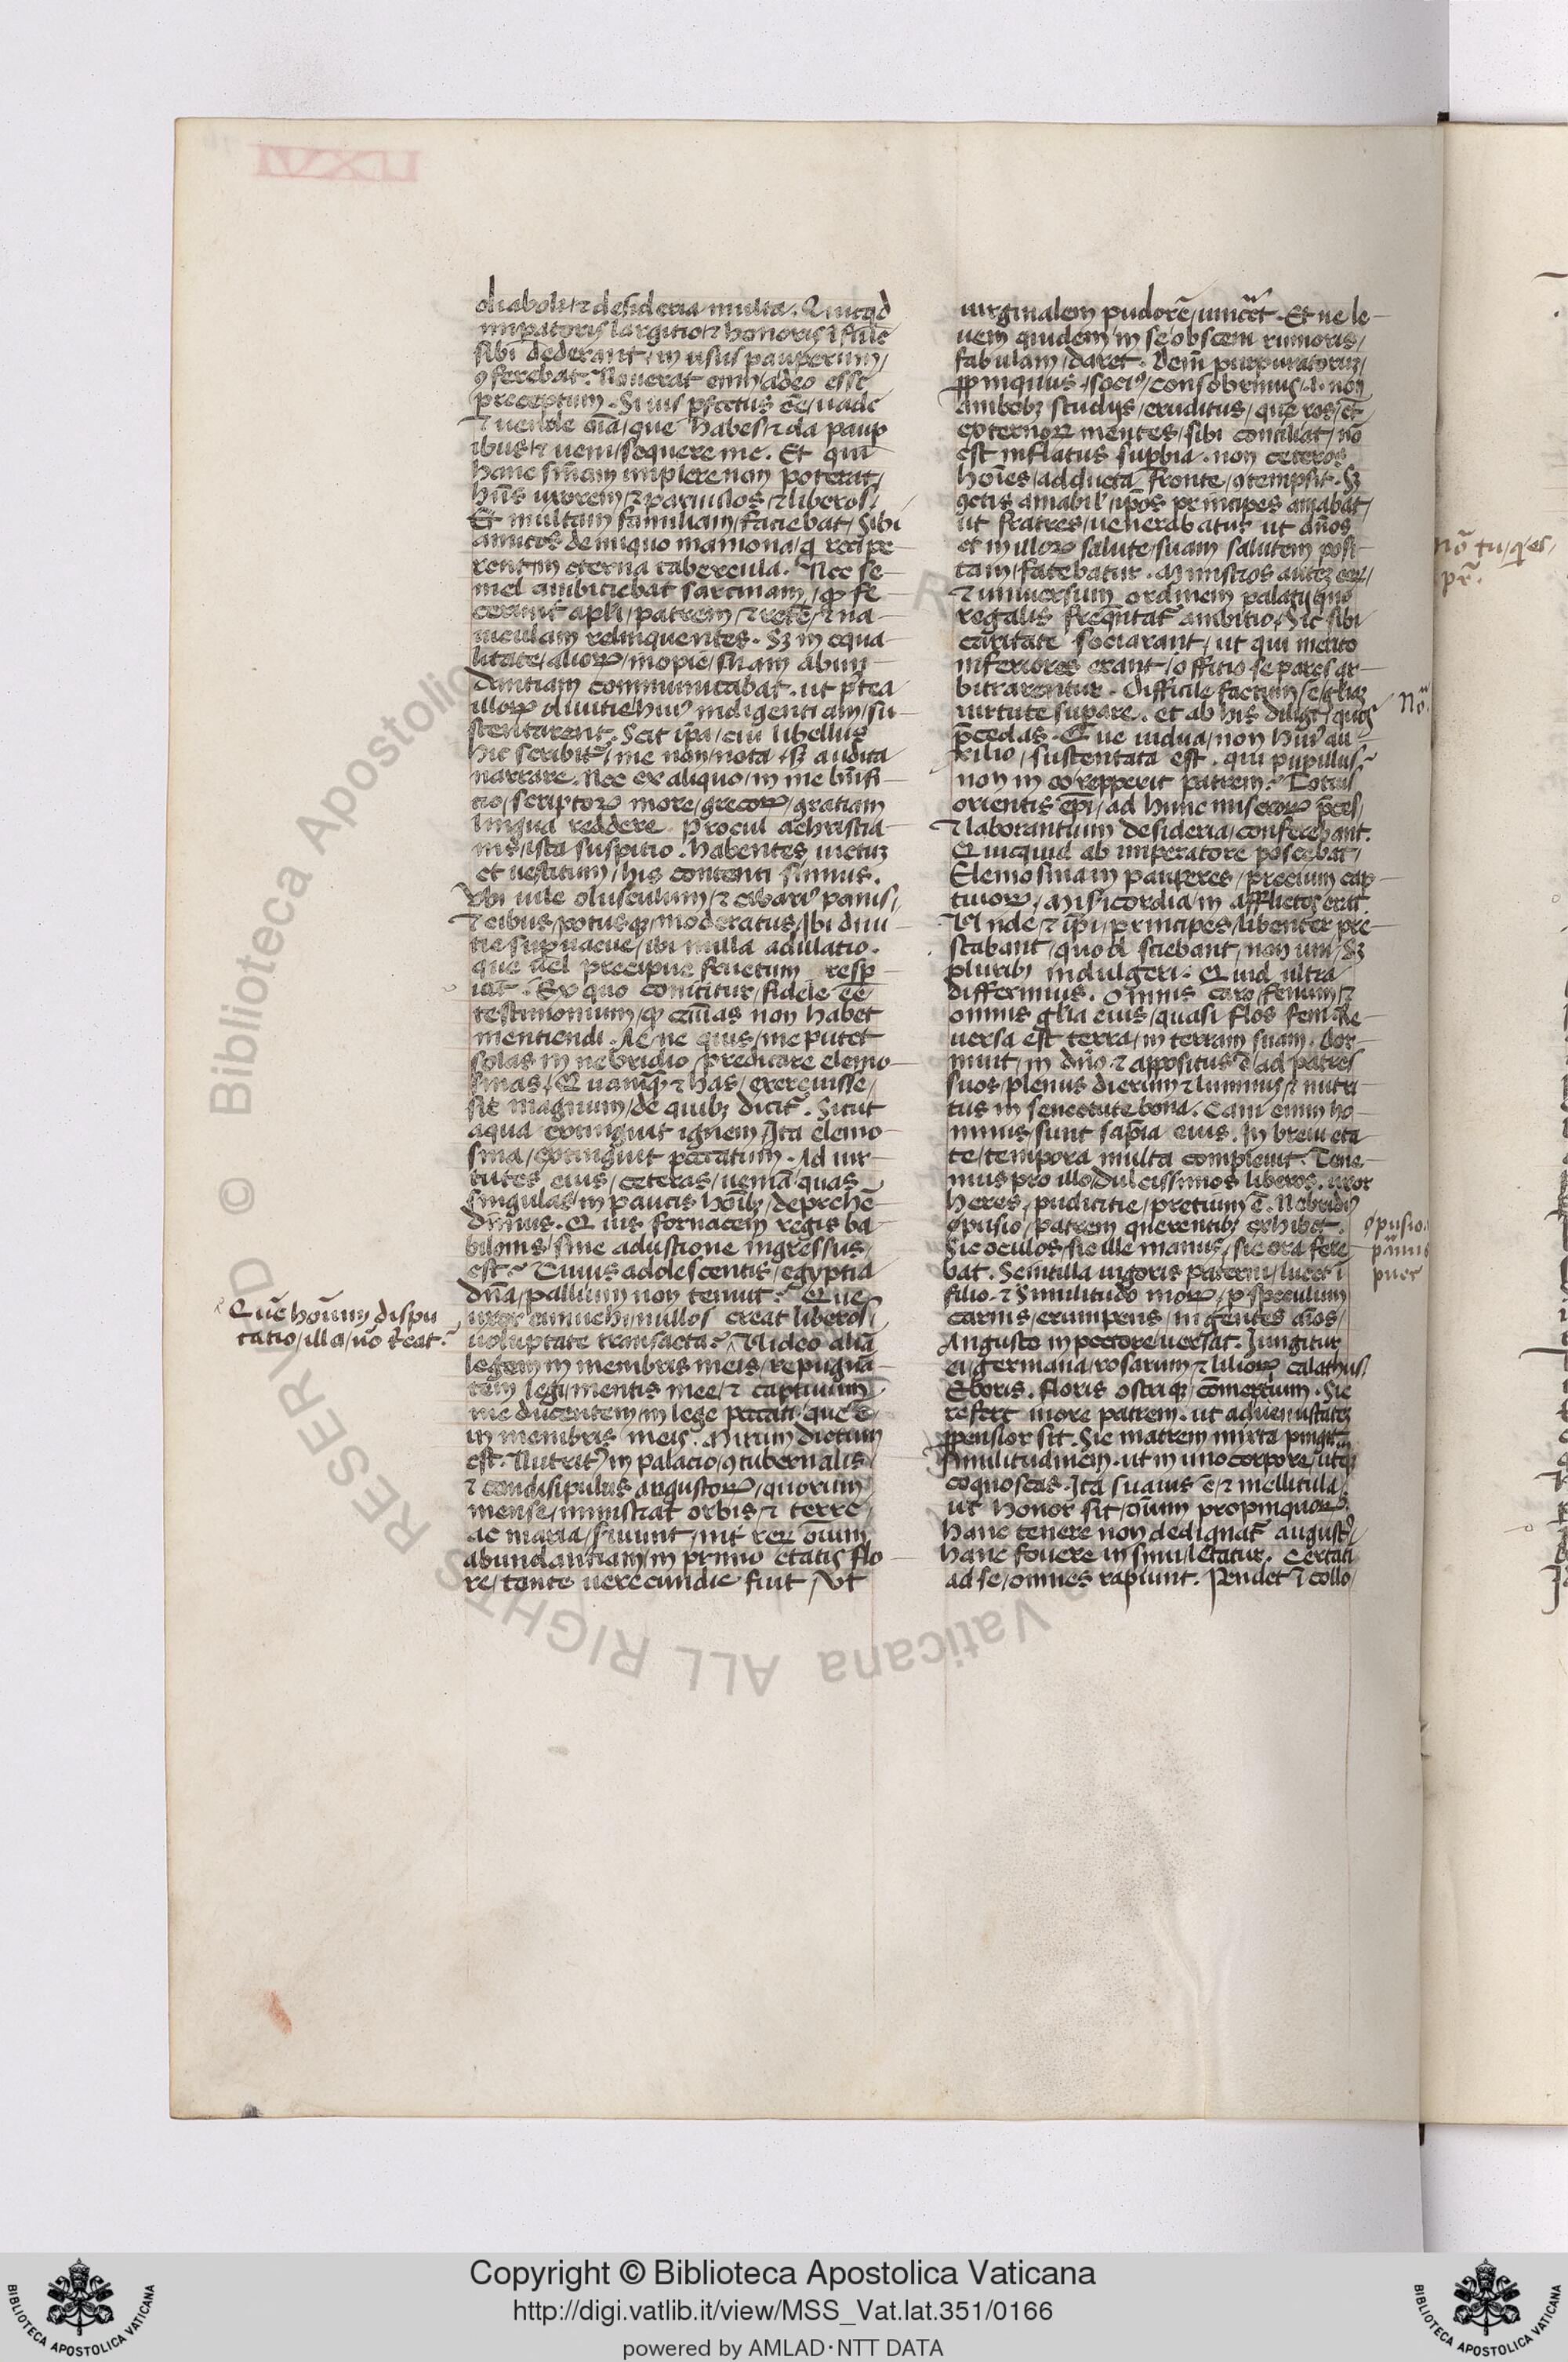 diaboli / ⁊ desideria multa. Quicqd
impatoris largitio / ⁊ honoris ĩ fule
sibi dederant / in usus pauperum /
ꝯferebat. Nouerat enim a deo esse
preceptum. Si uis pfectus eē / uade
⁊ uende oīa / que habes / ⁊ da paup
ibus / ⁊ ueni / sequere me. Et quia
hanc sñiam implere non poterat /
hñs uxorem / ⁊ paruulos / ⁊ liberos /
Et multam familiam / faciebat / Sibi
amicos de iniquo mamona / q̄ recipe
rent in eterna tabercula. Nec se
mel ambiciebat sarcinam / qꝫ fe
cerunt apli / patrem / ⁊ rete / ⁊ na
uiculam relinquentes. Sꝫ in equa
litate / alioꝝ / inopie / suam abun
dantiam communicabat. ut p̄tea
illoꝝ diuitie / huiꝰ indigentiam / su
stentarent. Scit ipa / cui libellus
hic scribitᷣ / me non / nota / sꝫ audita
narrare. Nec ex aliquo / in me bñfi
cio / scriptoꝝ more / grecoꝝ / gratiam
lingua reddere. Procul a christia
nis / ista suspitio. Habentes uictuꝫ
et uestitum / his contenti sumus.
Vbi uile olusculum / ⁊ cibariꝰ panis /
⁊ cibus / potusqꝫ / moderatus / Ibi diui
tie supuacue / ibi nulla adulatio.
que uel precipue fructum resp
icit. Ex quo conicitur / fidele eē
testimonium / qꝫ causas non habet
mentiendi. Ac / ne quis / me putet
solas in nebridio / predicare elemo
sinas. Quamqꝫ ⁊ has / exercuisse /
sit magnum / de quibꝫ dicitᷣ. Sicut
aqua extinguit ignem / Ita elemo
sina / extinguit peccatum. Ad uir
tutes eius / ceteras / ueniā / quas
singulas in paucis hoībꝫ / deprehē
dimus. Quis fornacem regis ba
bilonis / sine adustione ingressus /
est? Cuius adolescentis / egyptia
dña / pallium non tenuit? Que
uxor eunuchi / nullos creat liberos /
uoluptate transacta? Video aliā
legem in membris meis / repugnā
tem legi / mentis mee / ⁊ captiuum
me ducentem / in lege peccati / que ē
in membris meis. Mirum dictum
est. Nutritꝰ in palacio / ꝯtubernalis /
⁊ condisipulus augustoꝝ / quorum
mense / ministrat orbis / ⁊ terre /
ac maria / seruiunt / int reꝝ oīum
abundantiam / in primo etatis flo
re / tante uerecundie fuit / Vt
Quē hoīum dispu
tatio / illa / nō terreat?
uirginalem pudorē / uinceret. Et ne le
uem quidem in se obsceni rumoris /
fabulam / daret. Deīn purpuratoruꝫ /
ꝓpinquus / sociꝰ / consobrinus / ⁊ non
ambobꝫ studijs / eruditus / que res / et
externoꝝ mentes / sibi conciliat / nō
est inflatus supbia. non ceteros
hoīes / adducta fronte / ꝯtempsit. Sꝫ
cunctis amabilˀ / ipos principes amabat /
ut fratres / uenerabatur ut dños
et in illoꝝ salute / suam salutem posi
tam / fatebatur. Ministros auteꝫ eoꝝ /
⁊ uniuersum ordinem palatij quo
regalis frequētatᷣ ambitio / Sic sibi
caritate sociarant / ut qui merito
inferiores erant / officio se pares ar
bitrarentur. Difficile factum ē / gl̄iaꝫ
uirtute supare. et ab his diligi / quos
p̄cedas. Que uidua / non huiꝰ au
xilio / sustentata est. qui pupillus /
non in eo / repperit patrem? Totius
orientis epi / ad hunc miseroꝝ p̄ces /
⁊ laborantium desideria / conferebant.
Quicquid ab imperatore poscebat /
Elemosinam pauperes / precium cap
tiuoꝝ / Misicordia / in afflictos erat.
Vnde / ⁊ ipi / principes / libenter pre
stabant / quod sciebant / non uni / Sꝫ
pluribꝫ indulgeri. Quid ultra
differimus. Omnis caro / fenum / ⁊
omnis gl̄ia eius / quasi flos feni. Re
uersa est terra / in terram suam. Dor
miuit / in dño ⁊ appositus ē / ad patres
suos / plenus dierum ⁊ luminis / ⁊ nutri
tus in senectute bona. Cani enim ho
minis / sunt sapīa eius. In breui eta
te / tempora multa compleuit. Tene
mus pro illo / dulcissimos liberos. uxor
heres / pudicitie / pretium ē. Nebridiꝰ
opusio / patrem querentibꝫ exhibet.
Sic oculos / sic ille manus / sic ora fere
bat. Scintilla uigoris paterni / lucet ĩ
filio. ⁊ Similitudo moꝝ / p speculum
carnis / erumpens / ingentes aīos /
Angusto in pectore / uersat. Iungitur
ei / germana / rosarum / ⁊ lilioꝝ calathus /
Eboris. floris ostriqꝫ comertium. Sic
refert more patrem. ut ad uenustateꝫ
ꝓpensior sit. Sic matrem mixta pingit
similitudinem. ut in uno corpore / utꝝqꝫ
cognoscas. Ita suauis ē / ⁊ mellitula /
ut honor sit / oīum propinquoꝝ.
hanc tenere non dedignatᷣ augustꝰ /
hanc fouere in sinu / letatur. Certati
ad se / omnes rapiunt. Pendet ĩ collo /
Nō
opusio.
puer
Copyright © Biblioteca Apostolica Vaticana
http://digi.vatlib.it/view/MSS_Vat.lat.351/0166
powered by AMLAD·NTT DATA
BIBLIOTECA APOSTOLICA VATICANA
BIBLIOTECA APOSTOLICA VATICANA
© Biblioteca Apostolica Vaticana ALL RIGHTS RESERVED